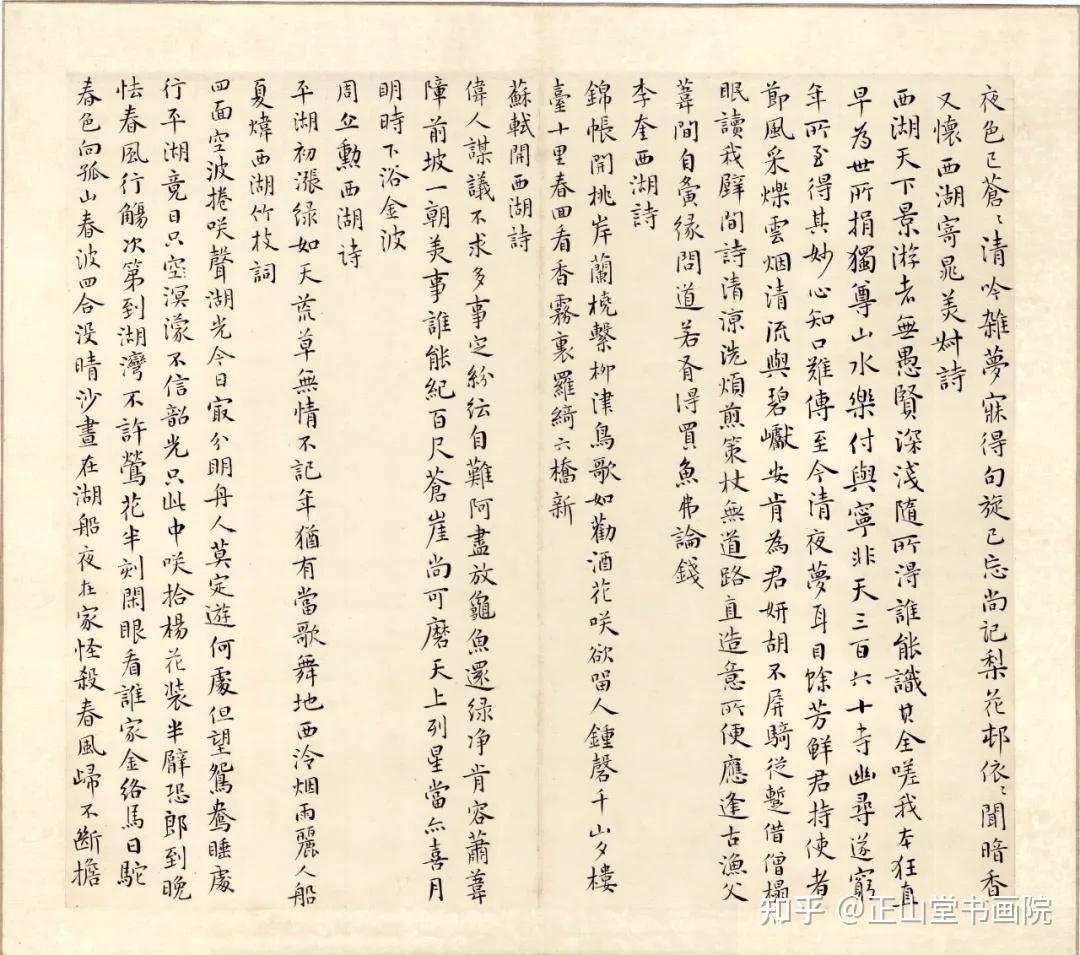 夜色已蒼〻清吟雜夢寐得句旋已忘尚記梨花邨依〻聞暗香
又懷西湖寄晁美叔詩
西湖天下景游者無愚賢深淺隨所得誰能識其全嗟我本狂直
早為世所捐獨專山水樂付與寧非天三百六十寺幽尋遂窮
年所至得其妙心知口難傳至今清夜夢耳目餘芳鮮君持使者
節風采爍雲烟清流與碧巘安肯為君妍胡不屏騎從蹔借僧榻
眠讀我壁間詩清涼洗煩煎策杖無道路直造意所便應逢古漁父
葦間自夤緣問道若有得買魚弗論錢
李奎西湖詩
錦帳開桃岸蘭橈繫柳津鳥歌如勸酒花咲欲留人鍾磬千山夕樓
臺十里春回看香霧裏羅綺六橋新
蘇軾開西湖詩
偉人謀議不求多事定紛紜自難阿盡放龜魚還绿净肯容蕭葦
障前坡一朝美事誰能紀百尺蒼崖尚可磨天上列星當亦喜月
明時下浴金波
周立勳西湖诗
平湖初漲绿如天荒草無情不記年猶有當歌舞地西泠烟雨麗人船
夏煒西湖竹枝詞
四面空波捲咲聲湖光今日宼分明舟人莫定遊何處但望鴛鴦睡處
行平湖竟日只空溟濛不信韶光只此中咲拾楊花装半臂恐郎到晚
怯春風行觴次第到湖灣不許鶯花半刻閒眼看誰家金络馬日駝
春色向孤山春波四合没晴沙晝在湖船夜在家怪殺春風歸不斷擔
知乎 @正山堂书画院